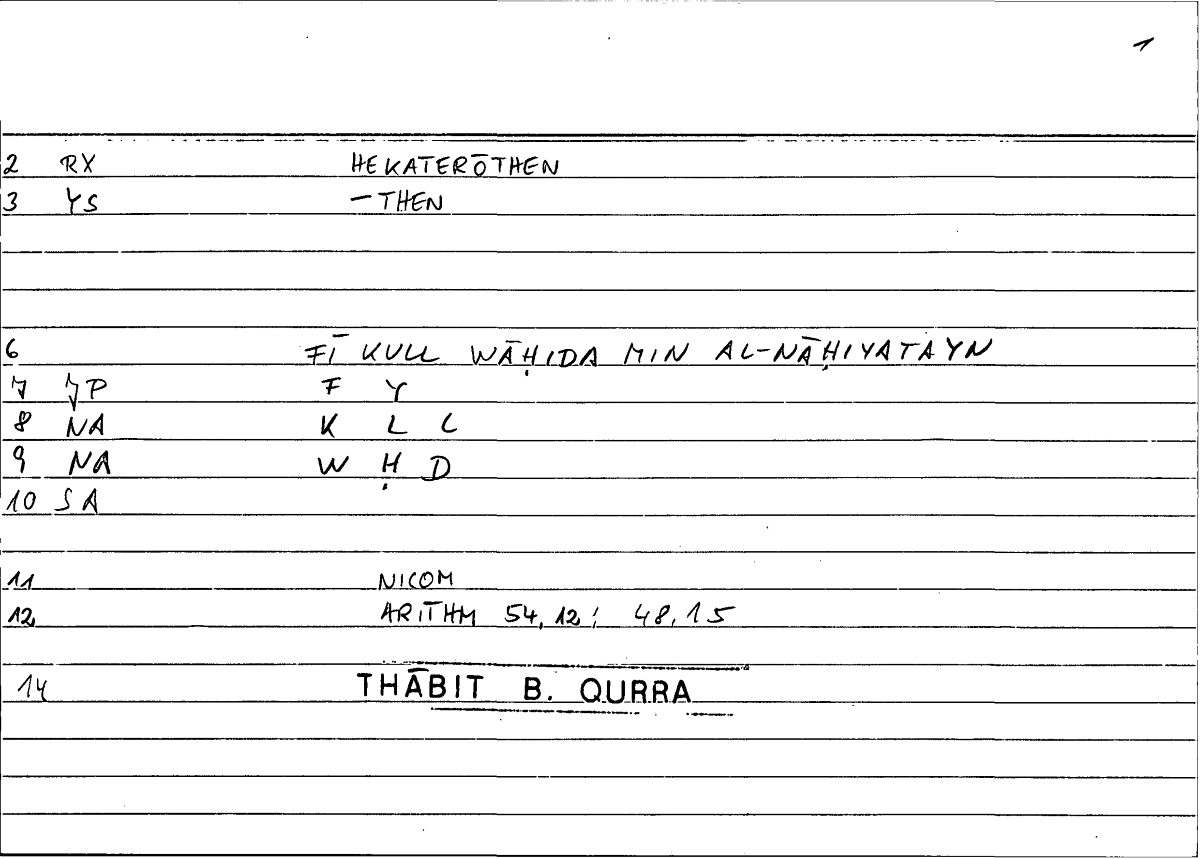 1
2 RX HEKATERŌTHEN
3 YS –THEN
6 FĪ KULL WĀḤIDA MIN AL-NĀḤIYATAYN
7 JP F Y
8 NA K L L
9 NA W Ḥ D
10 SA
11 NICOM
12 ARITHM 54,12; 48,15
14 THĀBIT B. QURRA